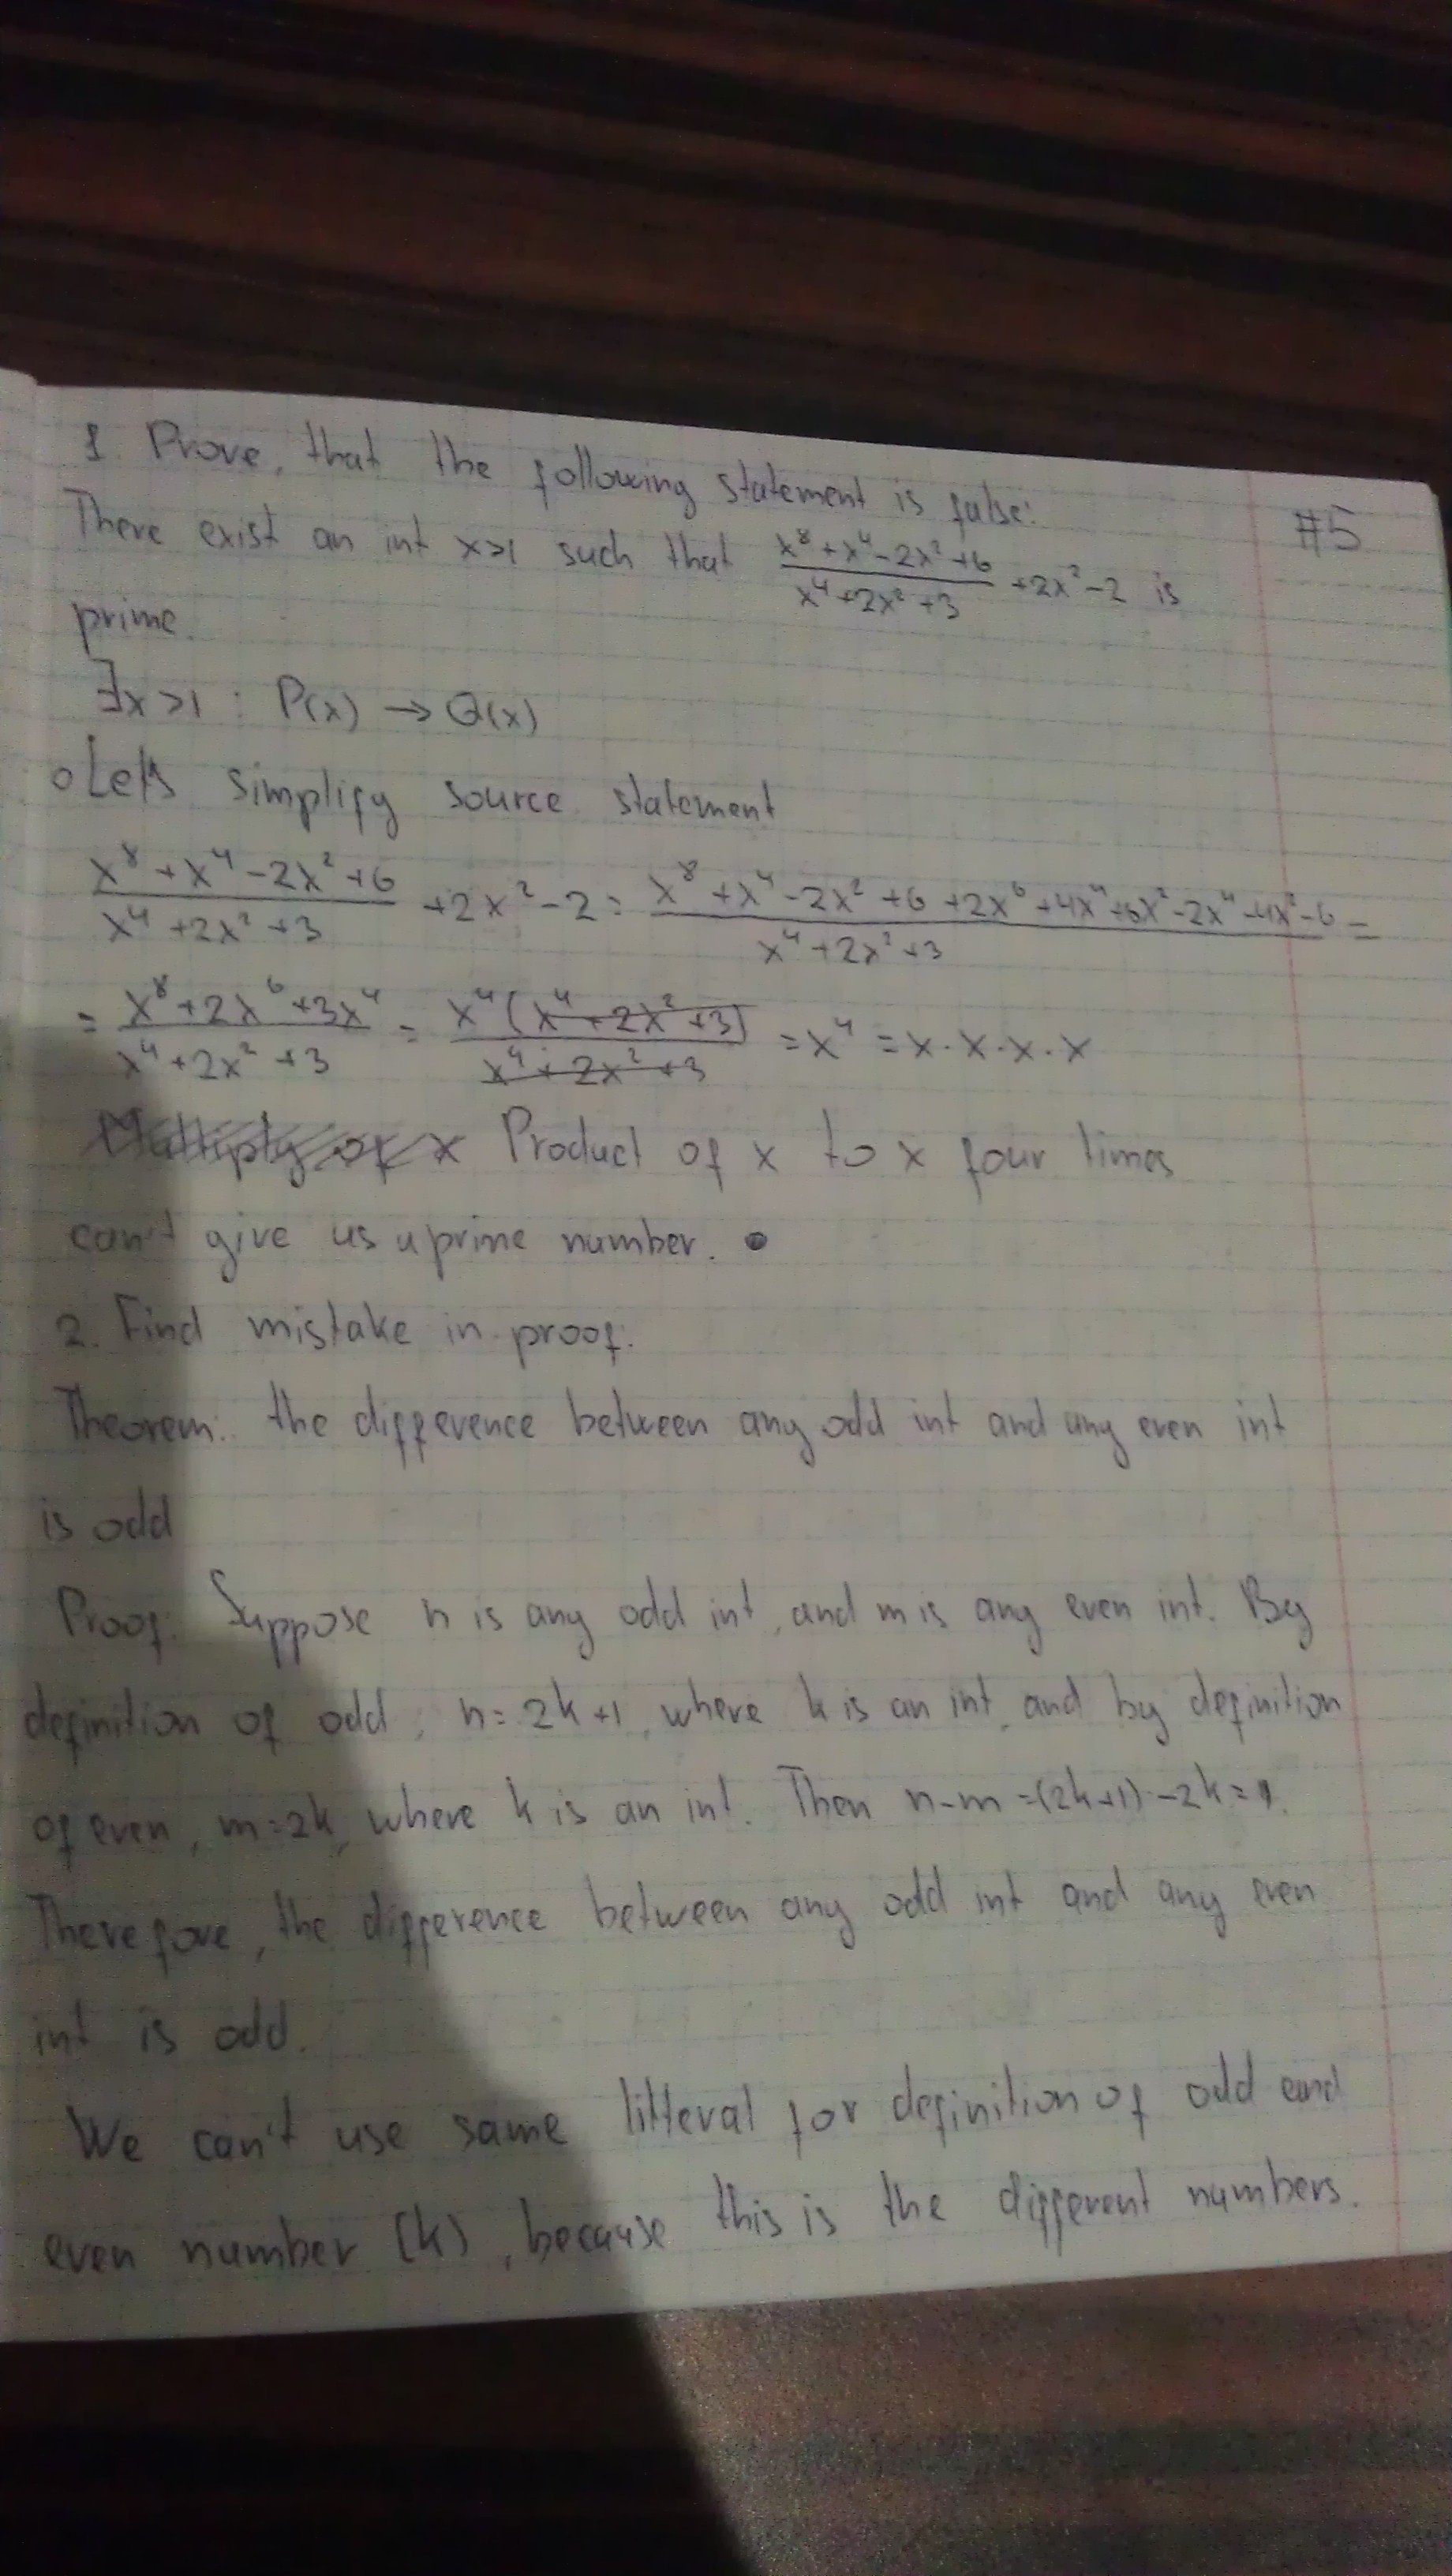 1. Prove, that the following statement is false:
#5
There exist an int x>1 such that (x⁸+x⁴-2x²+6)/(x⁴+2x²+3) +2x²-2 is
prime.
∃x>1 : P(x) → Q(x)
o Let's simplify source statement
(x⁸+x⁴-2x²+6)/(x⁴+2x²+3) +2x²-2 = (x⁸+x⁴-2x²+6+2x⁶+4x⁴+6x²-2x⁴-4x²-6)/(x⁴+2x²+3) =
= (x⁸+2x⁶+3x⁴)/(x⁴+2x²+3) = (x⁴(x⁴+2x²+3))/(x⁴+2x²+3) = x⁴ = x·x·x·x
Multiply of x Product of x to x four times
can't give us a prime number. •
2. Find mistake in proof.
Theorem: the difference between any odd int and any even int
is odd
Proof: Suppose n is any odd int, and m is any even int. By
definition of odd, n=2k+1, where k is an int, and by definition
of even, m=2k, where k is an int. Then n-m=(2k+1)-2k=1.
Therefore, the difference between any odd int and any even
int is odd.
We can't use same litteral for definition of odd and
even number (k), because this is the different numbers.